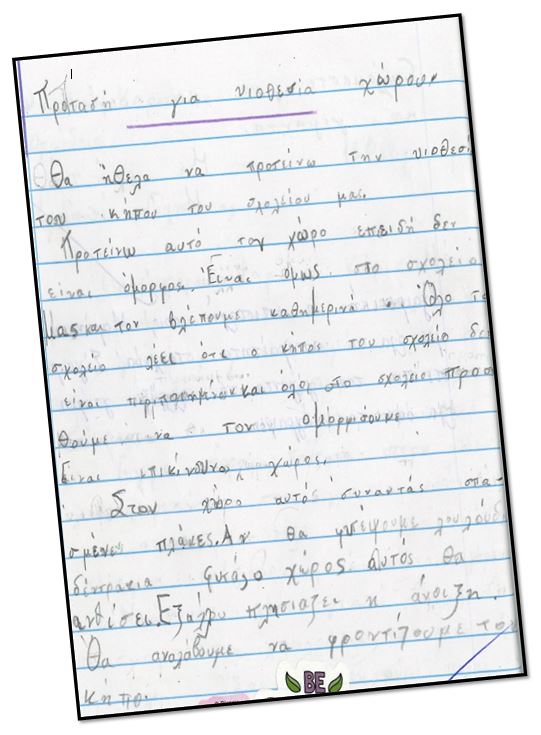 Πρόταση για υιοθεσία χώρου
Θα ήθελα να προτείνω την υιοθεσί
του κήπου του σχολείου μας.
Προτείνω αυτό τον χώρο επειδή δεν
είναι όμορφος. Είναι όμως στο σχολείο
μας και τον βλέπουμε καθημερινή. Όλο το
σχολείο λέει ότι ο κήπος του σχολείο δε
είναι περιποιημένων και όλο το σχολείο προσπα
θούμε να τον ομορφίσουμε
Είναι επικίνδυνο χώρος.
Στον χώρο αυτός συναντάς σπα-
σμένες πλάκες. Αν θα φυτέψουμε λουλούδ
δέντρακια χώρος αυτός θα
ανθίσει. πλησιάζει η άνοιξη.
Θα αναλάβουμε να φροντίζουμε τον
κήπο.
BE